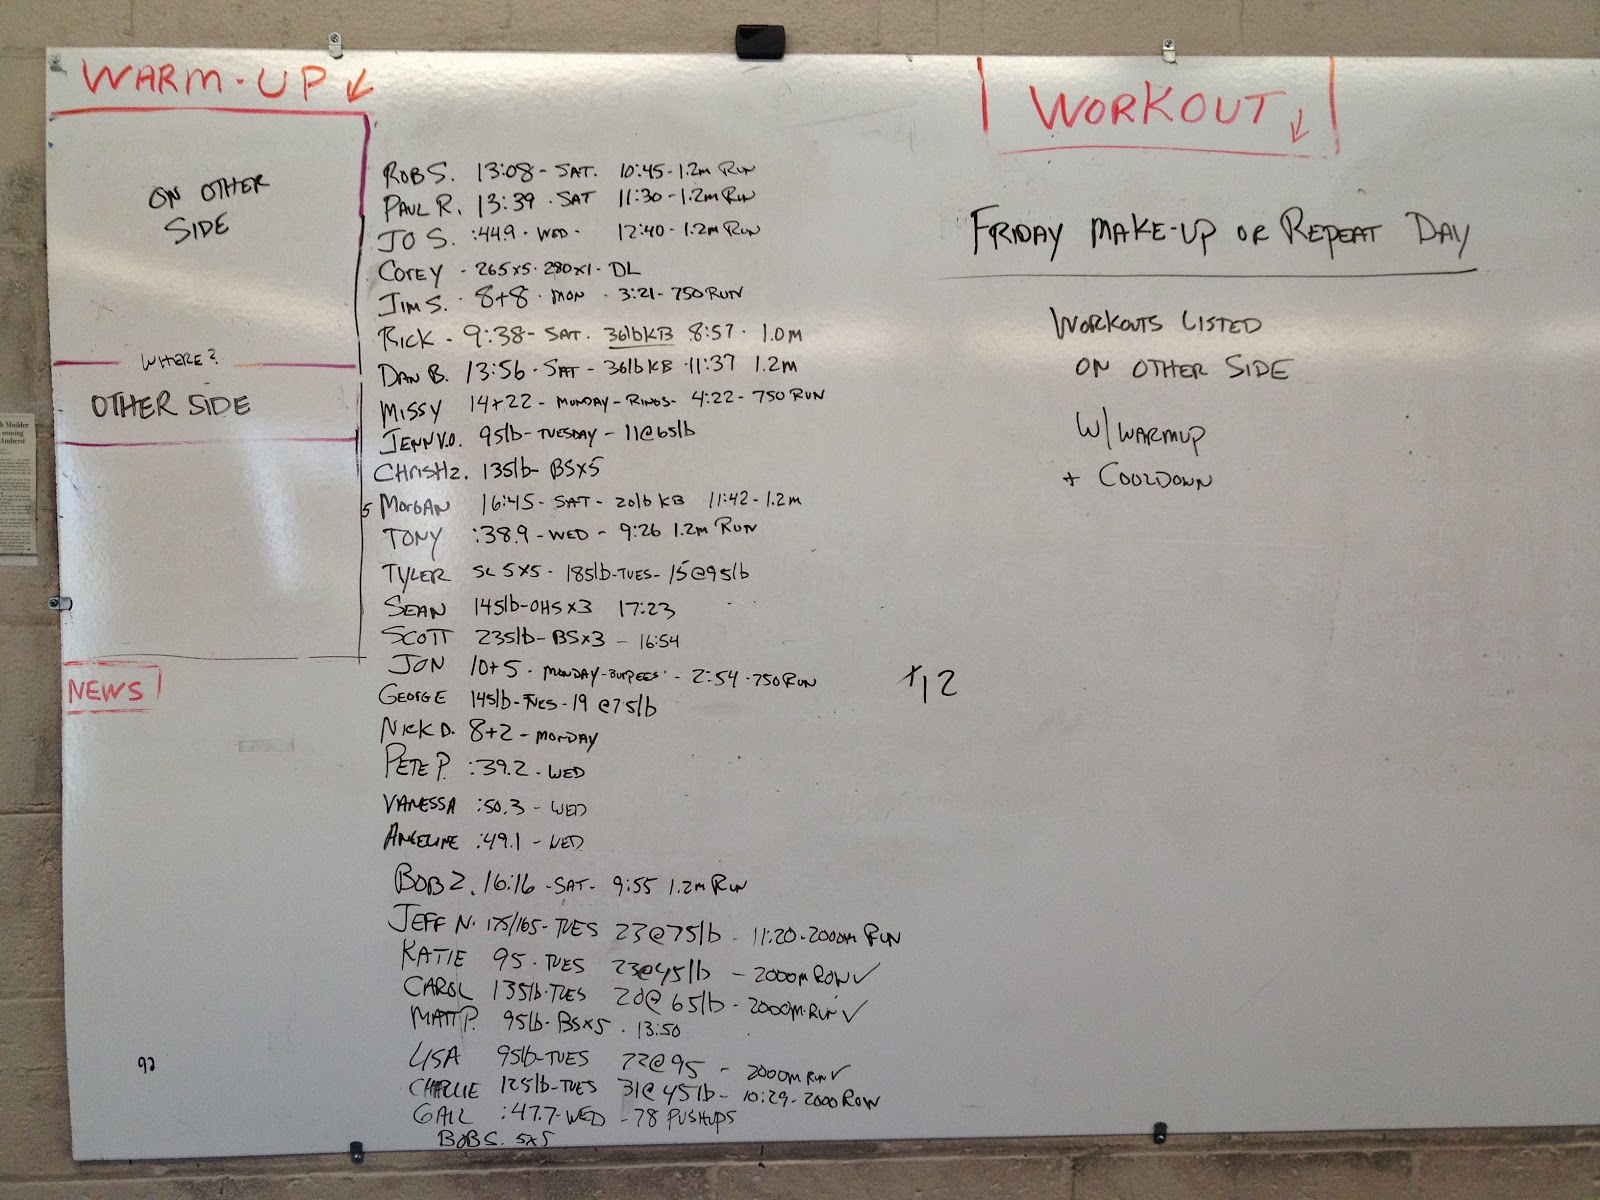 WARM-UP ↓
ON OTHER
SIDE
WHERE?
OTHER SIDE
NEWS
92
ROB S. 13:08 - SAT. 10:45 - 1.2m RUN
PAUL R. 13:39 - SAT 11:30 - 1.2m RUN
JO S. :44.9 - WED - 12:40 - 1.2m RUN
COREY - 265x5 - 280x1 - DL
JIM S. 8+8 - MON - 3:21 - 750 RUN
RICK - 9:38 - SAT. 36lb KB 8:57 - 1.0m
DAN B. 13:56 - SAT - 36lb KB - 11:37 1.2m
MISSY 14+22 - MONDAY - RINGS - 4:22 - 750 RUN
JENN V.O. 95lb - TUESDAY - 11@65lb
CHRIS HZ. 135lb - BSx5
5 MORGAN 16:45 - SAT - 20lb KB 11:42 - 1.2m
TONY :38.9 - WED - 9:26 1.2m RUN
TYLER SL 5x5 - 185lb - TUES - 15@95lb
SEAN 145lb - OHSx3 17:23
SCOTT 235lb - BSx3 - 16:54
JON 10+5 - MONDAY - BURPEES - 2:54 - 750 RUN
GEORGE 145lb - TUES - 19 @75lb
NICK D. 8+2 - MONDAY
PETE P. :39.2 - WED
VANESSA :50.3 - WED
ANGELINE :49.1 - WED
BOB Z. 16:16 - SAT - 9:55 1.2m RUN
JEFF N. 175/165 - TUES 23@75lb - 11:20 - 2000m RUN
KATIE 95 - TUES 23@45lb - 2000m ROW ✓
CAROL 135lb - TUES 20@65lb - 2000m RUN ✓
MATT P. 95lb - BSx5 - 13:50
LISA 95lb - TUES 22@95 - 2000m RUN ✓
CHARLIE 125lb - TUES 31@45lb - 10:29 - 2000 ROW
GAIL :47.7 - WED - 78 PUSHUPS
BOB S. 5x5
WORKOUT ↓
FRIDAY MAKE-UP OR REPEAT DAY
WORKOUTS LISTED
ON OTHER SIDE
W/ WARMUP
+ COOLDOWN